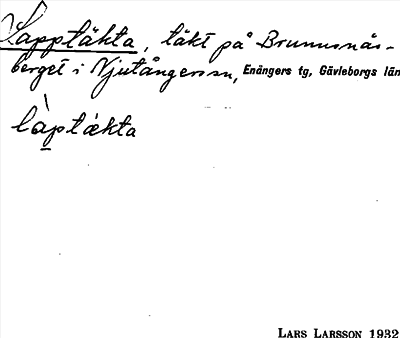 Lapptäkta, täkt på Brunnsnäs-
berget i Njutångers sn, Enångers tg, Gävleborgs län
làptékta
LARS LARSSON 1932